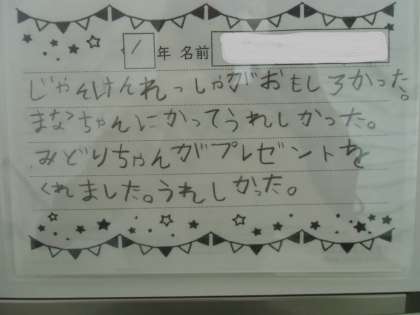 1年 名前
じゃんけんれっしゃがおもしろかった。
まなちゃんにかってうれしかった。
みどりちゃんがプレゼントを
くれました。うれしかった。